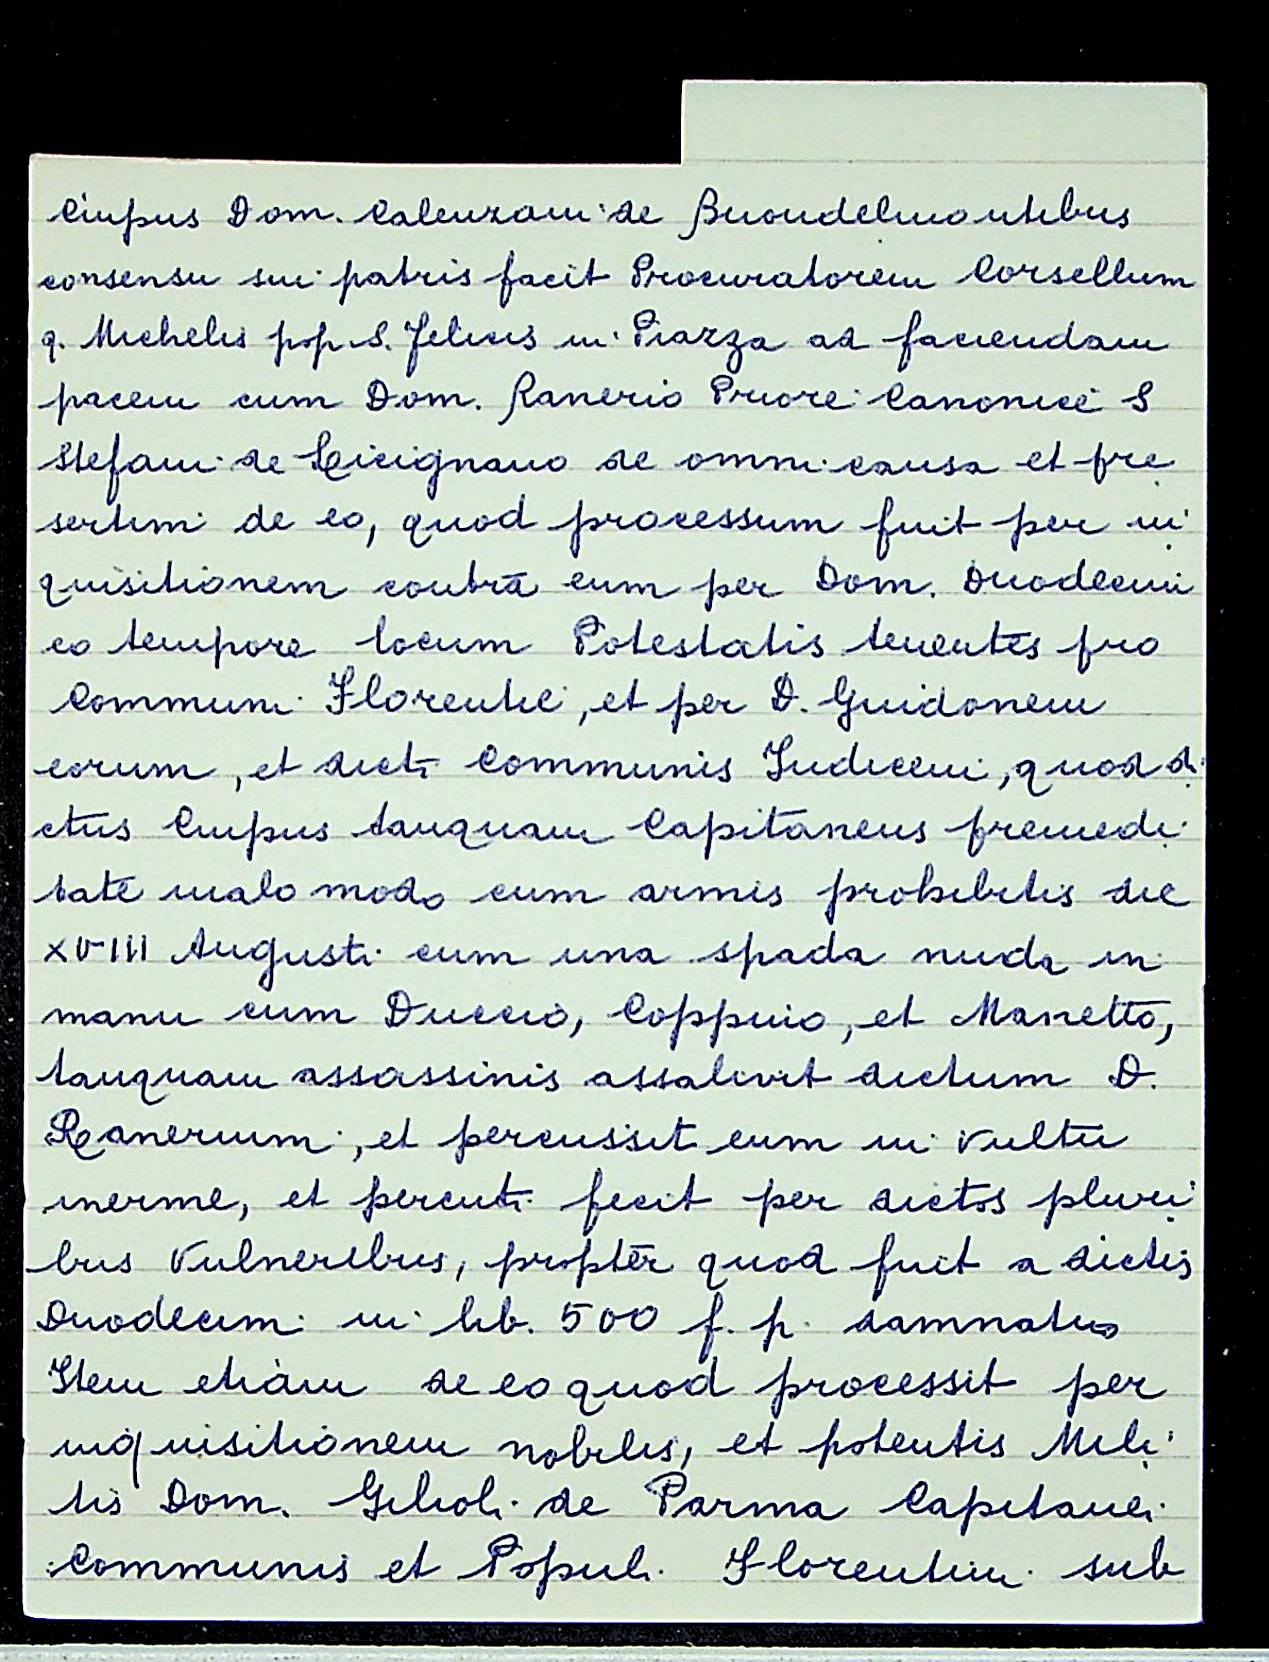 Cinpus Dom. Calenzani de Buondelmontibus
consensu sui patris facit Procuratorem Corsellum
q. Michelis pop. S. Felicis in Piazza ad faciendam
pacem cum Dom. Ranerio Priore Canonice S
Stefani de Licignano de omni causa et pre
sertim de eo, quod processum fuit per in
quisitionem contra eum per Dom. Duodecim
eo tempore locum Potestatis tenentes pro
Communi Florentie, et per D. Guidonem
eorum, et dicti Communis Judicem, quod di
ctus Cinpus tanquam Capitaneus premedi
tate malo modo cum armis prohibitis die
XVIII Augusti cum una spada nuda in
manu cum Duccio, Coppino, et Manetto,
tanquam assassinis assalivit dictum D.
Ranerium, et percussit eum in vultu
inerme, et percuti fecit per dictos pluri
bus Vulneribus, propter quod fuit a dictis
Duodecim in lib. 500 f. p. damnatus
Item etiam de eo quod processit per
inquisitionem nobilis, et potentis Mili
tis Dom. Ghelioli de Parma Capitanei
Communis et Populi Florentini sub